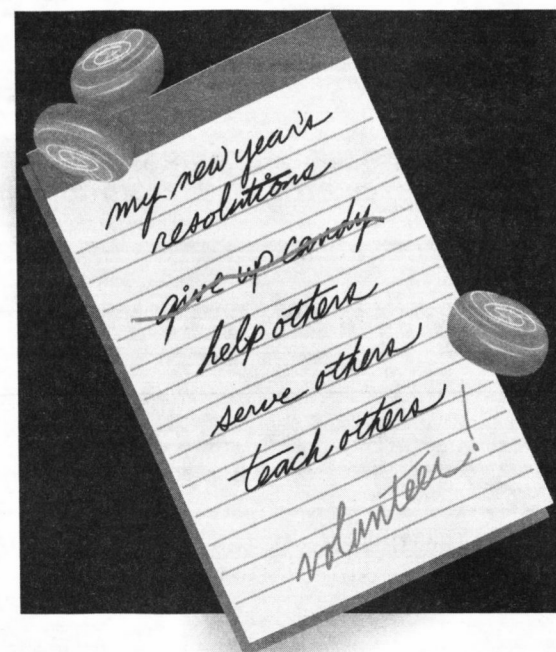 my new year's
resolutions
give up candy
help others
serve others
teach others
volunteer!